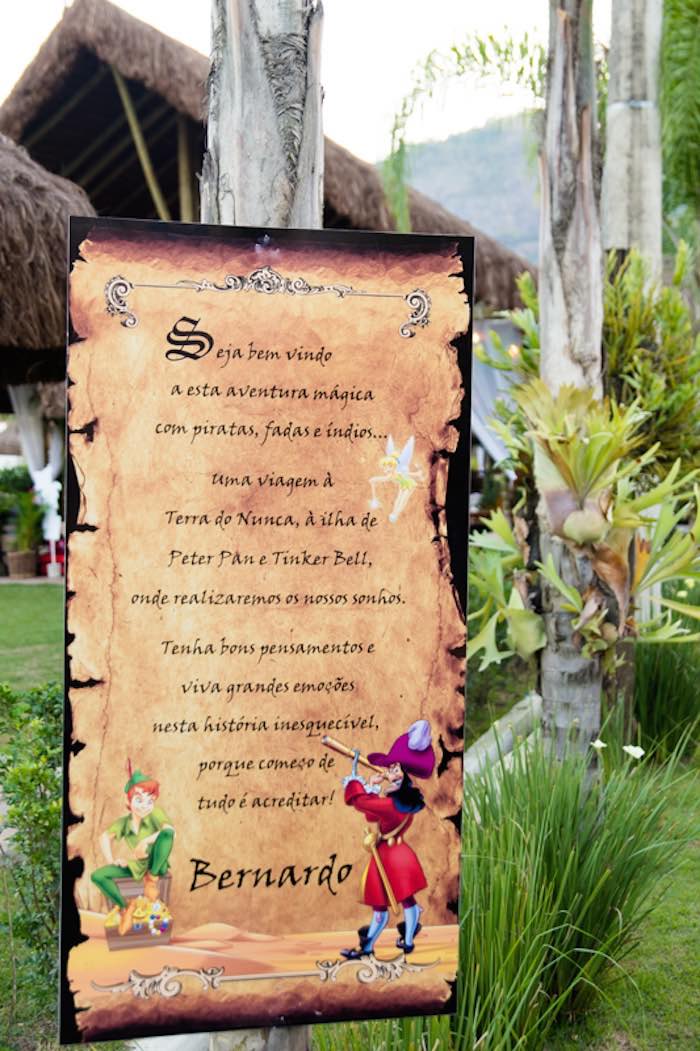 Seja bem vindo
a esta aventura mágica
com piratas, fadas e índios...
Uma viagem à
Terra do Nunca, à ilha de
Peter Pân e Tinker Bell,
onde realizaremos os nossos sonhos.
Tenha bons pensamentos e
viva grandes emoções
nesta história inesquecível,
porque começo de
tudo é acreditar!
Bernardo